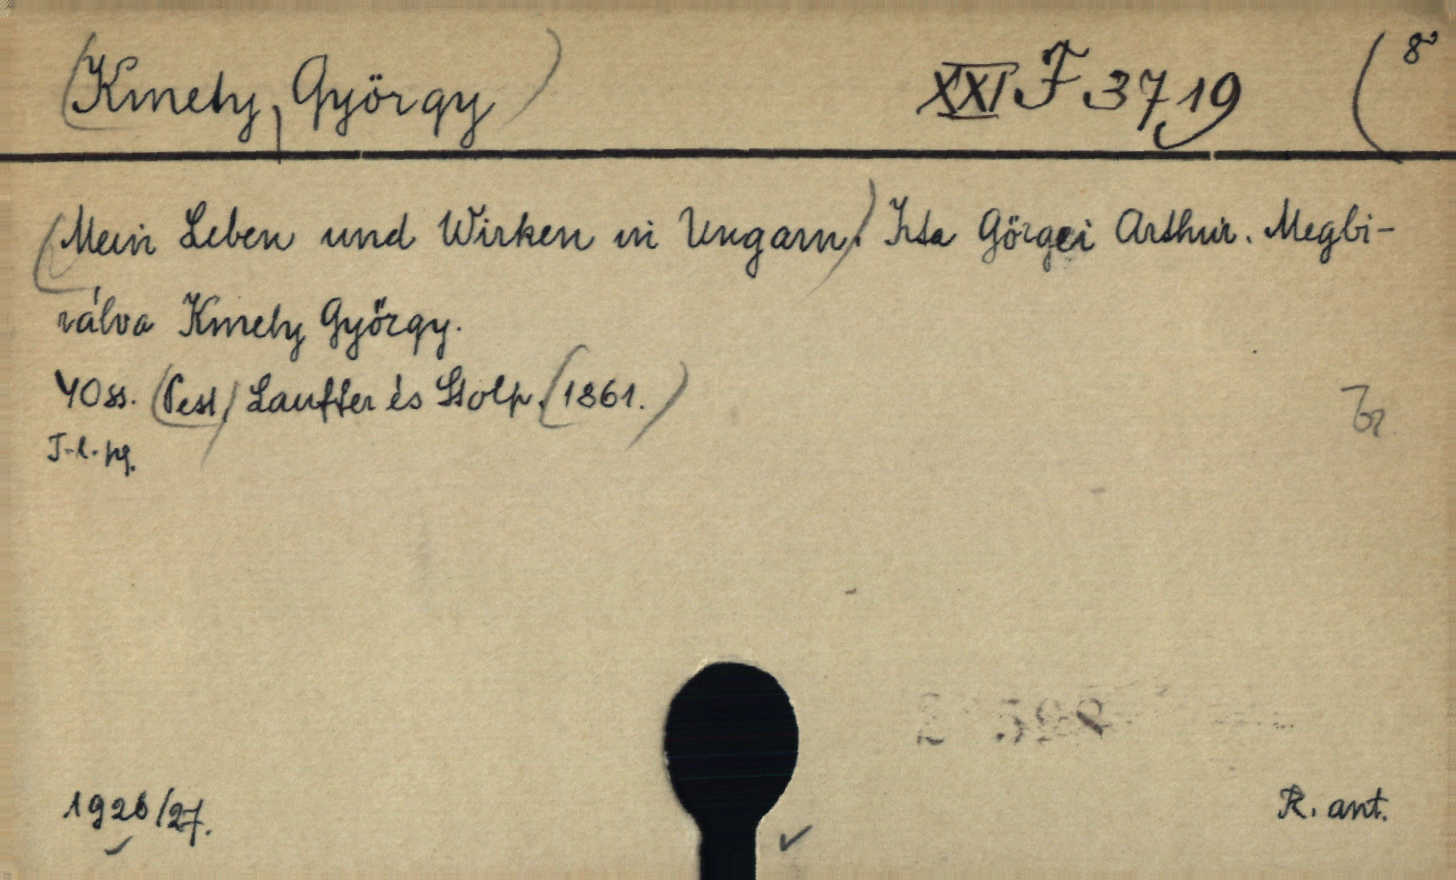 (Kmety, György) XXI F 3719 (8°
(Mein Leben und Wirken in Ungarn). Irta Görgei Arthur. Megbi-
rálva Kmety György.
40 ss. (Pest,) Lauffer és Stolp. (1861.)
1926/27.
R. ant.